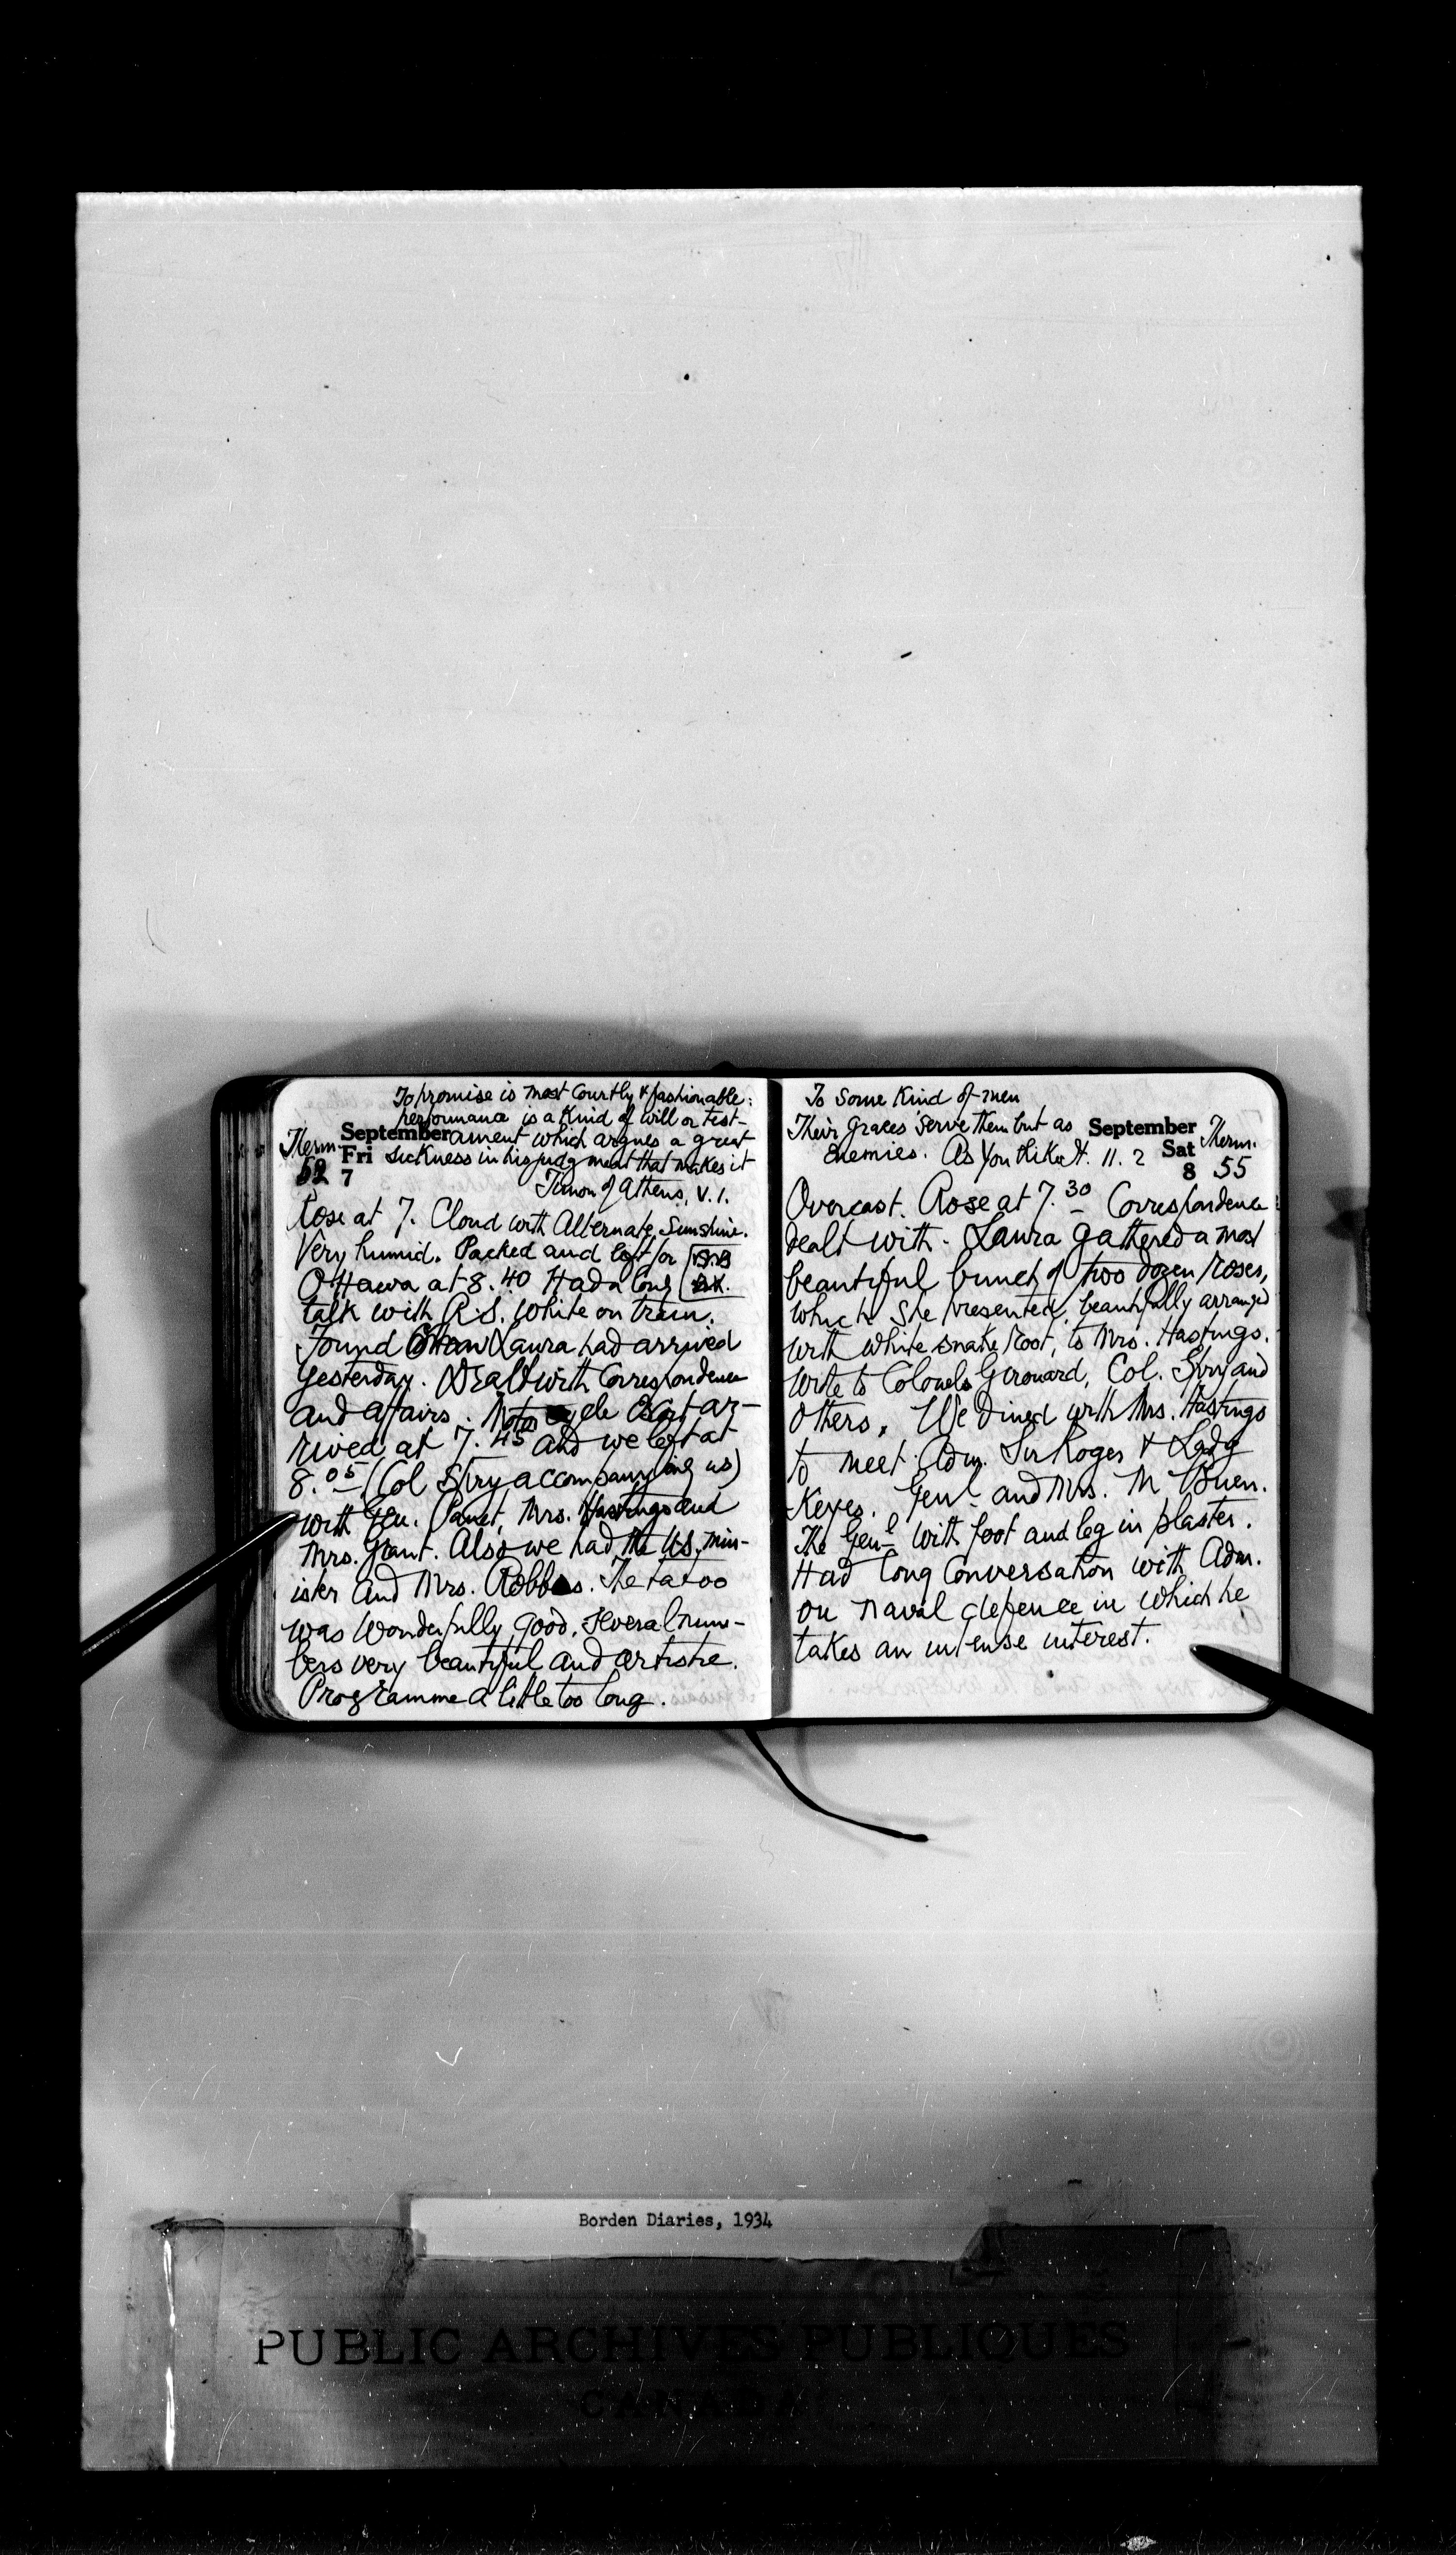 To promise is most Courtly & fashionable:
performance is a kind of will or test-
September ament which argues a great
Therm. Fri sickness in his judgment that makes it
52 7 Timon of Athens, V. 1.
Rose at 7. Cloud with Alternate Sunshine.
Very humid. Packed and left for
Ottawa at 8.40 Had a long
talk with R.S. White on train.
Found Laura had arrived
yesterday. Dealt with Correspondence
and affairs. Motor cycle ar-
rived at 7.45 and we left at
8.05 (Col Stry accompanying us)
with Gen. Panet, Mrs. Hastings and
Mrs. Grant. Also we had the U.S. min-
ister and Mrs. Robbins. The tatoo
was wonderfully good. Several num-
bers very beautiful and artistic.
Programme a little too long.
To Some Kind of men
Their graces serve them but as September Therm.
Enemies. As You Like It. 11. 2 Sat
8 55
Overcast. Rose at 7.30 Correspondence
dealt with. Laura gathered a most
beautiful bunch of two dozen roses,
which she presented, beautifully arranged
with white snake root, to Mrs. Hastings.
Wrote to Colonels Girouard, Col. and
others. We dined with Mrs. Hastings
to meet Adm. Sir Roger & Lady
Keyes. Genl and Mrs. McCuen.
The Genl with foot and leg in plaster.
Had long Conversation with Adm.
on naval defence in which he
takes an intense interest.
Borden Diaries, 1934
PUBLIC ARCHIVES PUBLIQUES
CANADA